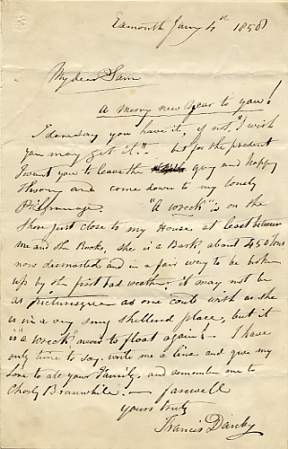 Exmouth Jany 4th 1858
My dear Sam
A merry new Year to you!
I daresay you have it, if not, "I wish
you may get it". but for the present
I want you to leave the gay and happy
throng and come down to my lonely
Pilgrimage. "A Wreck" is on the
shore just close to my House, at least between
me and the Rocks, she is a Bark about 450 tons
now dismasted and in a fair way to be broken
up by the first bad weather, it may not be
as Picturesque as one could wish as she
is in a very snug sheltered place, but it
is "a Wreck" never to float again! I have
only time to say, write me a line and give my
love to all your Family, and remember me to
Charly Branwhite! — farewell
Yours truly
Francis Danby